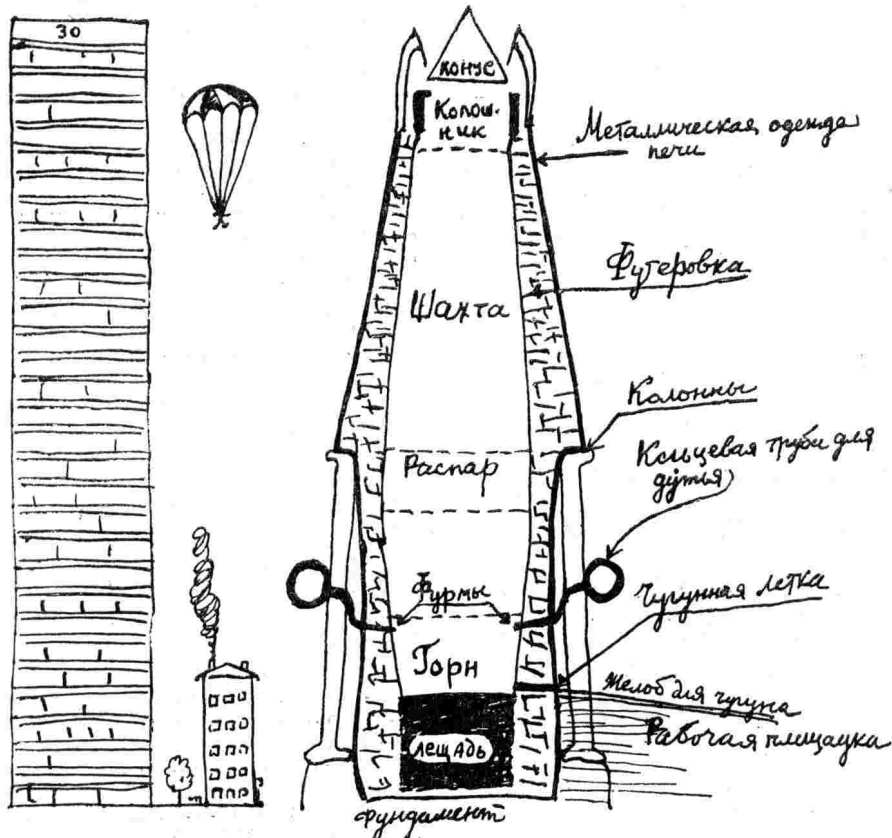 30
конус
Колош-
ник
Металлическая одежда
печи
Футеровка
Шахта
Колонны
Распар
Кольцевая труба для
дутья
Фурмы
Чугунная летка
Горн
Желоб для чугуна
Рабочая площадка
лещадь
Фундамент